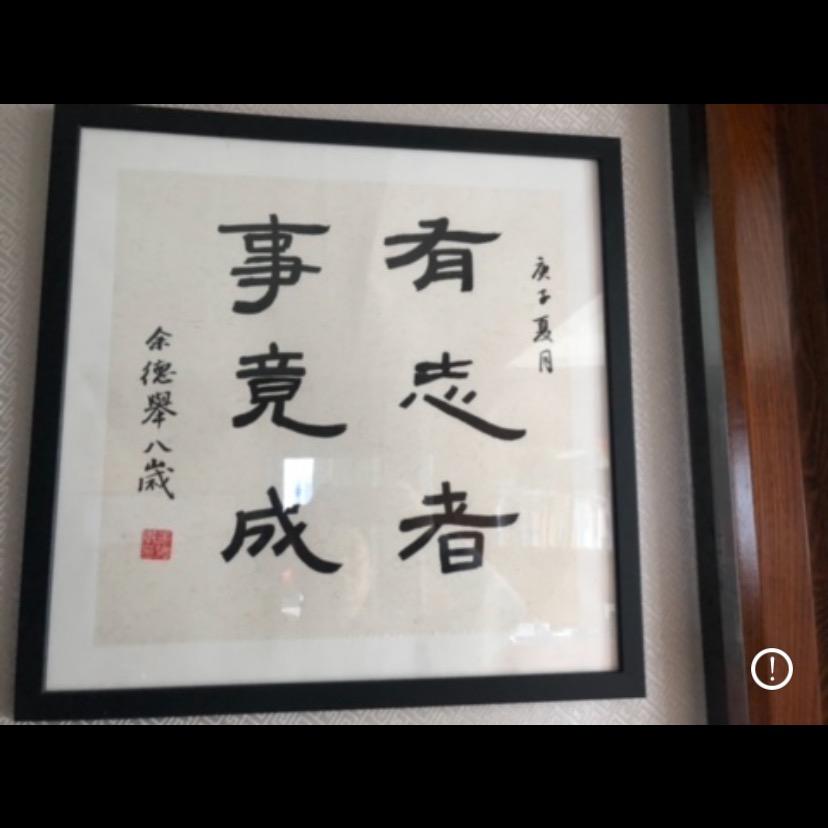 庚子夏月
有志者
事竟成
余德舉八歲